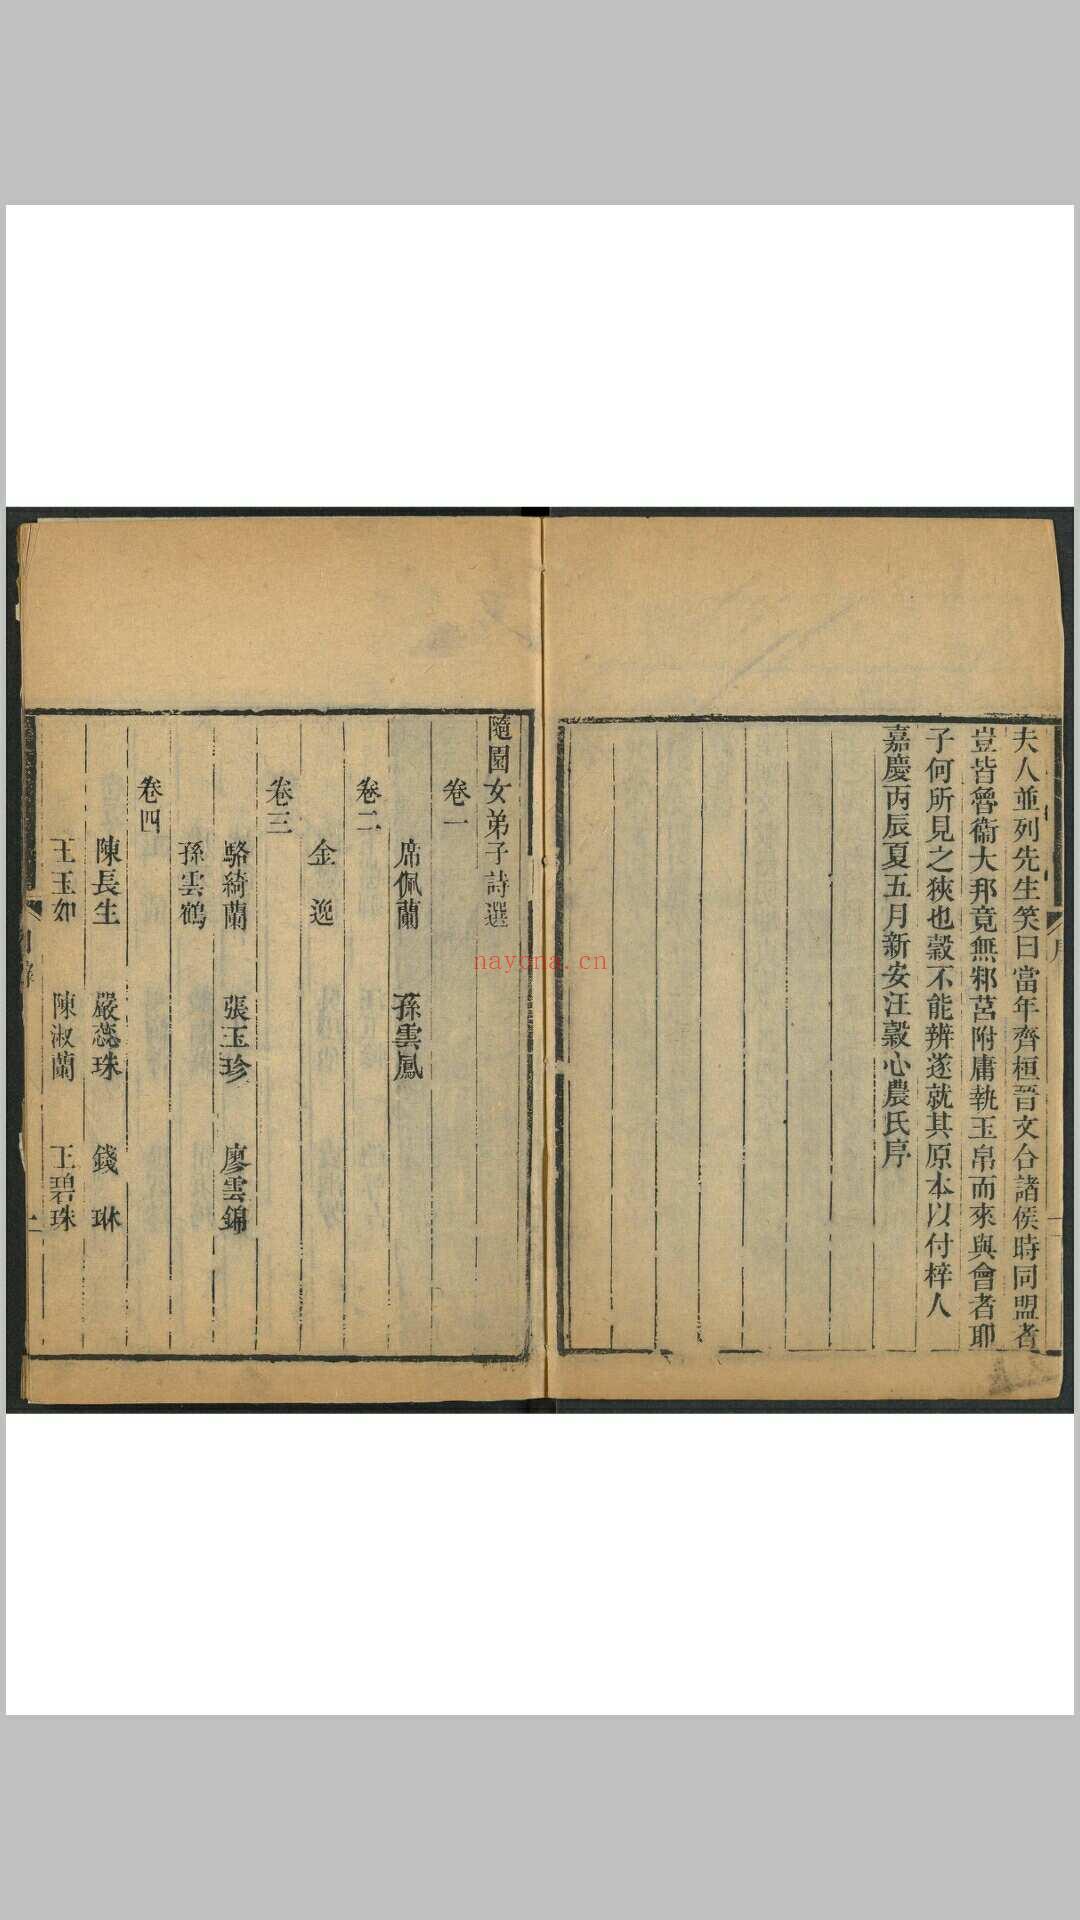 夫人並列先生笑曰當年齊桓晉文合諸侯時同盟者
豈皆魯衞大邦竟無邾莒附庸執玉帛而來與會者耶
子何所見之狹也穀不能辨遂就其原本以付梓人
嘉慶丙辰夏五月新安汪穀心農氏序
隨園女弟子詩選
卷一
席佩蘭 孫雲鳳
卷二
金逸
卷三
駱綺蘭 張玉珍 廖雲錦
孫雲鶴
卷四
陳長生 嚴蕊珠 錢琳
王玉如 陳淑蘭 王碧珠
nayona.cn